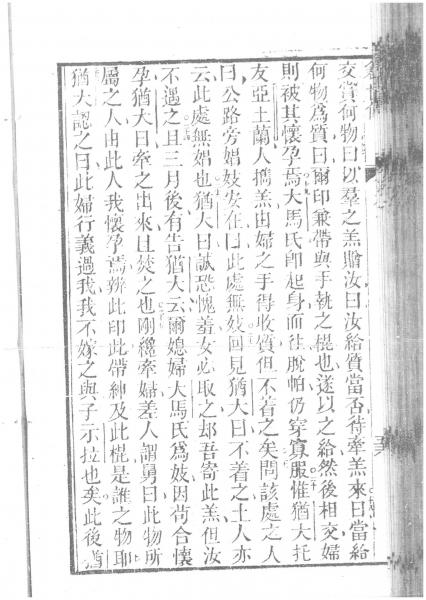 交賞何物曰以羣之羔贈汝曰汝給質當否待牽羔來曰當給
何物爲質曰爾印兼帶與手執之棍也遂以之給然後相交婦
則被其懷孕焉大馬氏卽起身而往脫帕仍穿寡服惟猶大托
友亞土蘭人擕羔由婦之手得收質但不着之矣問該處之人
曰公路旁娼妓安在曰此處無妓回見猶大曰不着之土人亦
云此處無娼也猶大曰誠恐愧羞女必取之却吾寄此羔但汝
不遇之且三月後有告猶大云爾媳婦大馬氏爲妓因苟合懷
孕猶大曰牽之出來且焚之也剛纔牽婦差人謂舅曰此物所
屬之人由此人我懷孕焉辨此印此帶紳及此棍是誰之物耶
猶大認之曰此婦行義過我我不嫁之與子示拉也矣此後猶